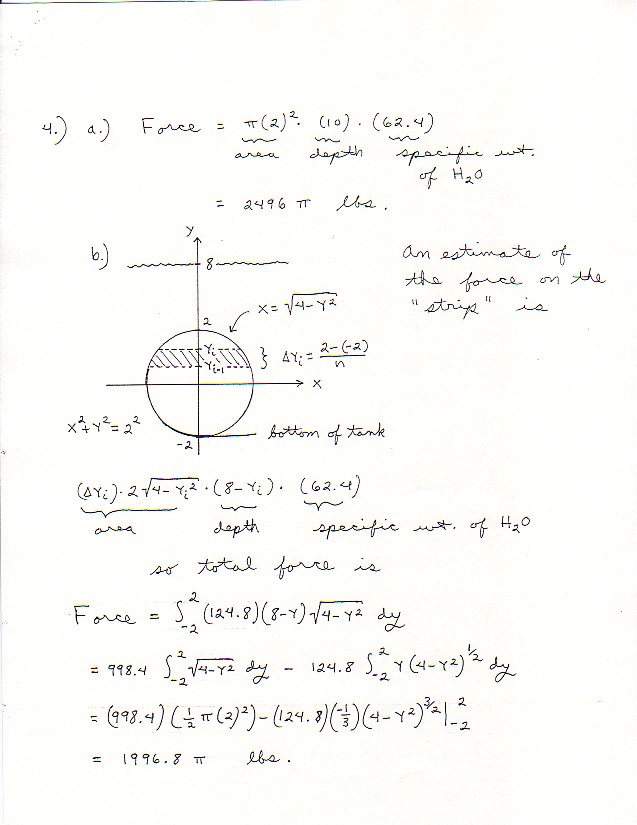 4.) a.) Force = π(2)² · (10) · (62.4)
area depth specific wt. of H₂O
= 2496 π lbs.
b.)
y
8
An estimate of
the force on the
"strip" is
x = √(4-Y²)
2
Yᵢ
Yᵢ₋₁
} ΔYᵢ = (2-(-2))/n
x
x² + Y² = 2²
-2
bottom of tank
(ΔYᵢ) · 2√(4-Yᵢ²) · (8-Yᵢ) · (62.4)
area depth specific wt. of H₂O
so total force is
Force = ∫₋₂² (124.8)(8-Y)√(4-Y²) dy
= 998.4 ∫₋₂² √(4-Y²) dy - 124.8 ∫₋₂² Y(4-Y²)^(1/2) dy
= (998.4)(½ π(2)²) - (124.8)(-1/3)(4-Y²)^(3/2) |₋₂²
= 1996.8 π lbs.